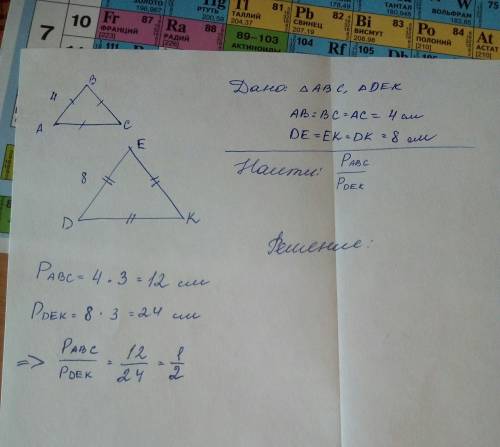 7
10
ЗОЛОТО
196,967
Hg
РТУТЬ
200,59
Tl
ТАЛЛИЙ
204,37
Pb
СВИНЕЦ
207,19
Bi
ВИСМУТ
208,98
Po
ПОЛОНИЙ
[210]
At
АСТАТ
[210]
Fr 87
ФРАНЦИЙ
[223]
Ra 88
РАДИЙ
[226]
89–103
АКТИНОИДЫ
104 Rf
105
81
82
83
84
85
178,49
ТАНТАЛ
180,948
ВОЛЬФРАМ
183,85
B
4
A
C
E
8
D
K
Дано: △ABC, △DEK
AB=BC=AC= 4 см
DE=EK=DK=8 см
Найти: P ABC / P DEK
Решение:
P ABC = 4 · 3 = 12 см
P DEK = 8 · 3 = 24 см
=> P ABC / P DEK = 12/24 = 1/2